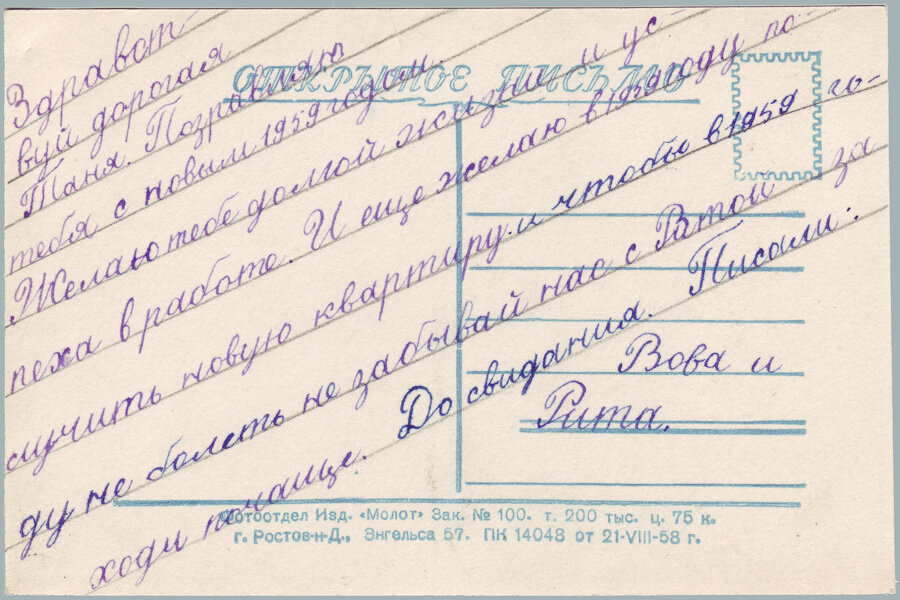 ОТКРЫТОЕ ПИСЬМО
Здравст-
вуй дорогая
Таня. Поздравляю
тебя с новым 1959 годом.
Желаю тебе долгой жизни и ус-
пеха в работе. И еще желаю в 1959 году по-
лучить новую квартиру и чтобы в 1959 го-
ду не болеть не забывай нас с Ритой за
ходи почаще. До свидания. Писали:
Вова и
Рита.
Фотоотдел Изд. «Молот» Зак. № 100. т. 200 тыс. ц. 75 к.
г. Ростов-н-Д., Энгельса 57. ПК 14048 от 21-VIII-58 г.